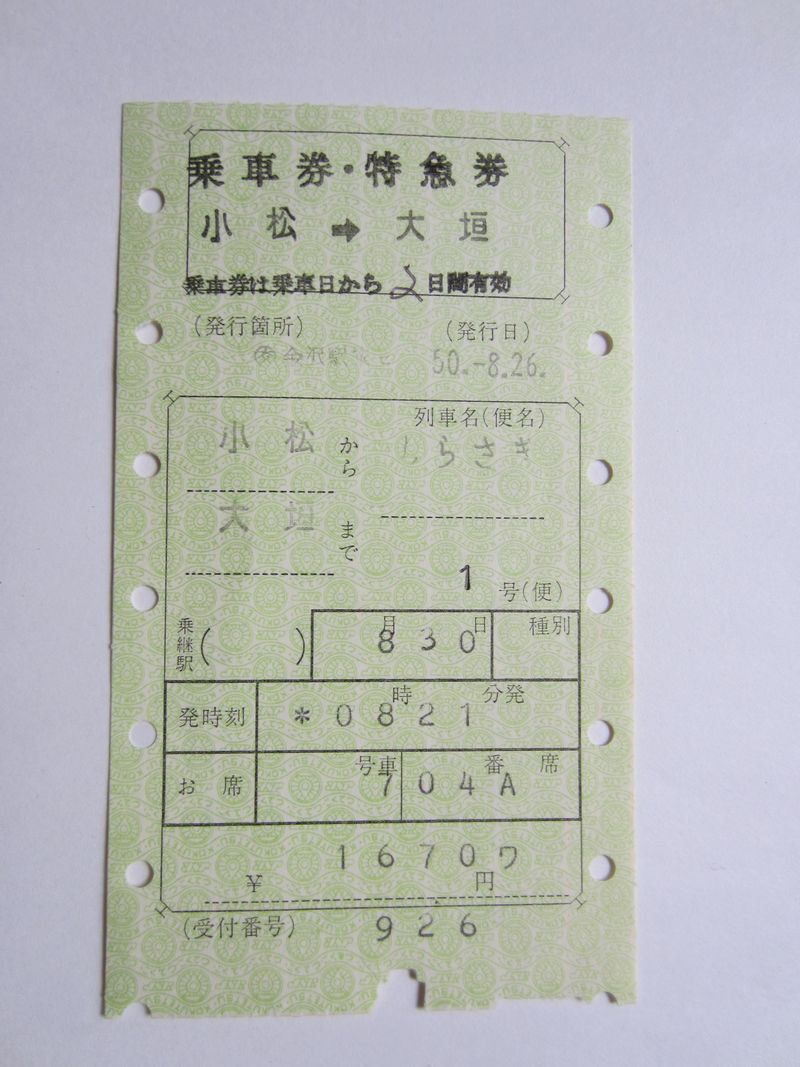 乗車券・特急券
小松➡大垣
乗車券は乗車日から2日間有効
(発行箇所) (発行日)
金沢駅 50.-8.26.
列車名(便名)
小松 から しらさぎ
大垣 まで
1 号(便)
乗継駅( ) 月 日 種別
8 30
発時刻 時 分発
*0821
お席 号車 番 席
7 04A
1670ワ
¥ 円
(受付番号) 926